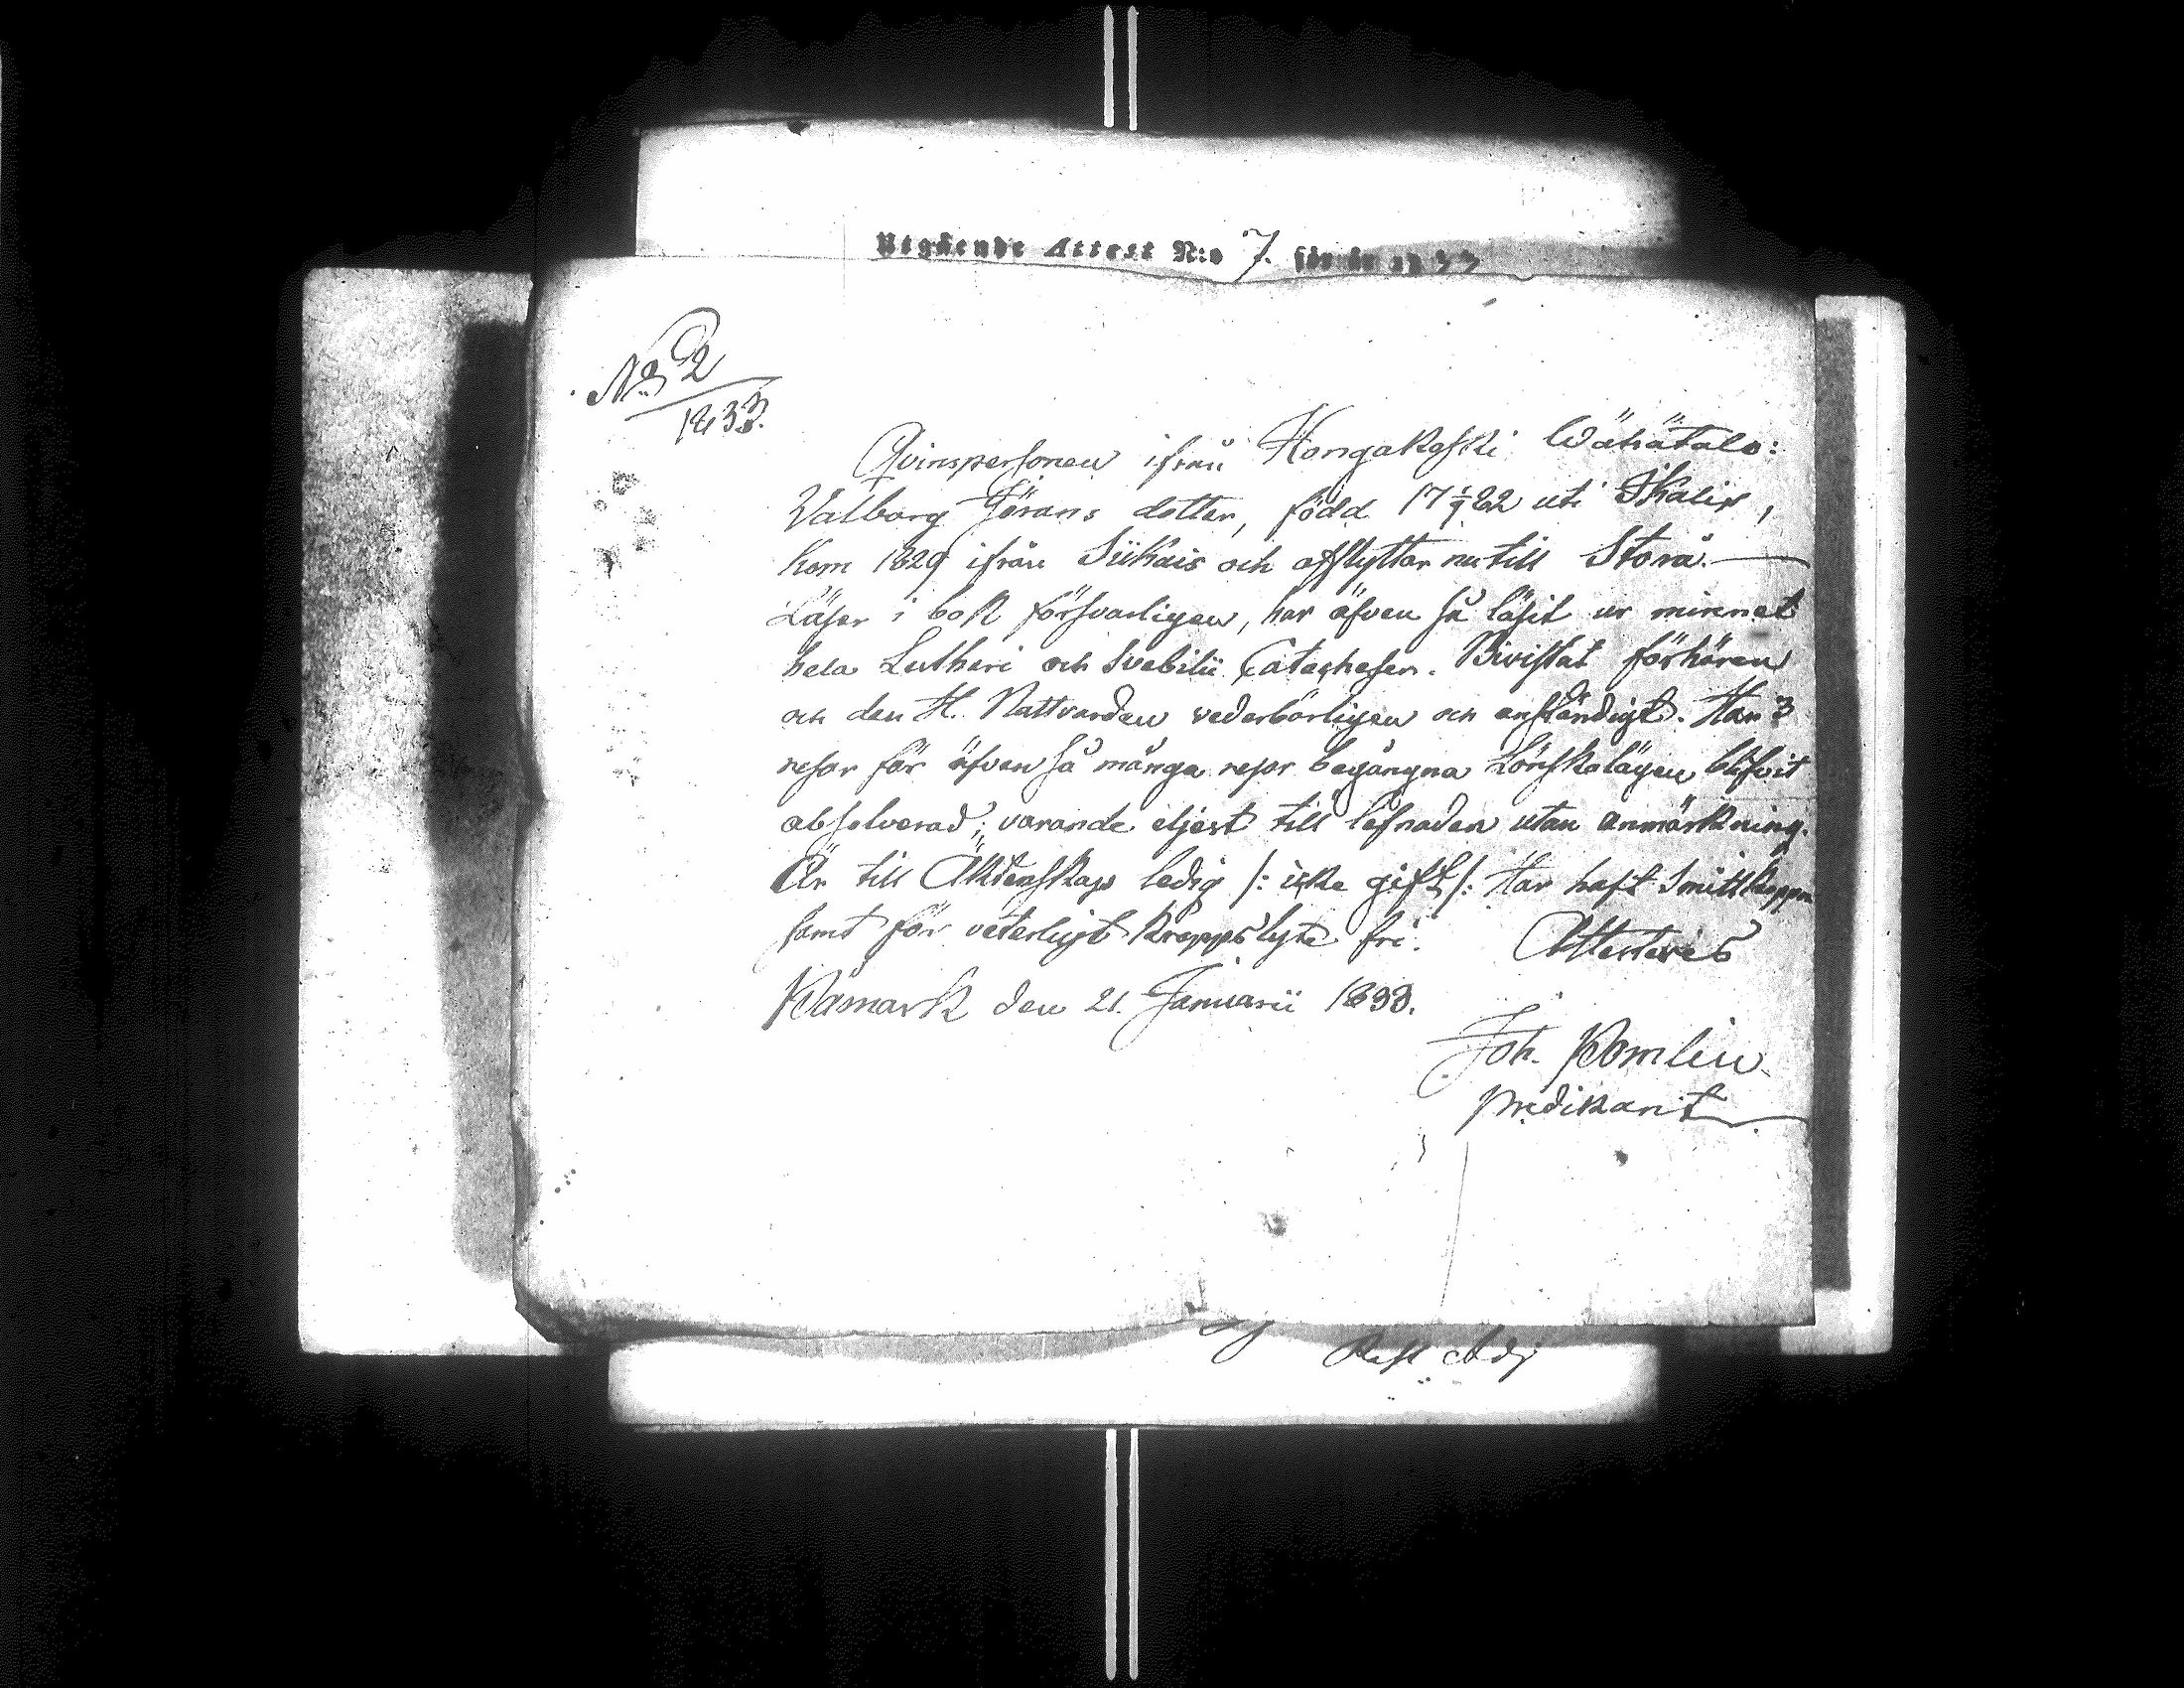 Utgående Attest N:o 7. för år 18 33
No 2
1833.
Qvinspersonen ifrån Kongakoski Wähätalo:
Walborg Jörans dotter, född 17 1/9 82 uti Ikalis,
kom 1829 ifrån Siikais och afflyttar nu till Storå.
Läser i bok försvarligen, har äfven så läsit ur minnet
hela Lutheri och Svebilii Catechesen. Bivistat förhören
och den H. Nattvarden vederbörligen och anständigt. Har 3
resor för äfven så många resor begångna Lönskalägen blifvit
absolverad; varande eljest till lefnaden utan anmärkning.
Är till Äktenskap ledig /: icke gift /: Har haft Smittkoppor
samt för veterligt kroppslyte fri. Attesteres
Påmark den 21. Januarii 1833.
Joh. Romlin
Predikant
Past Adj